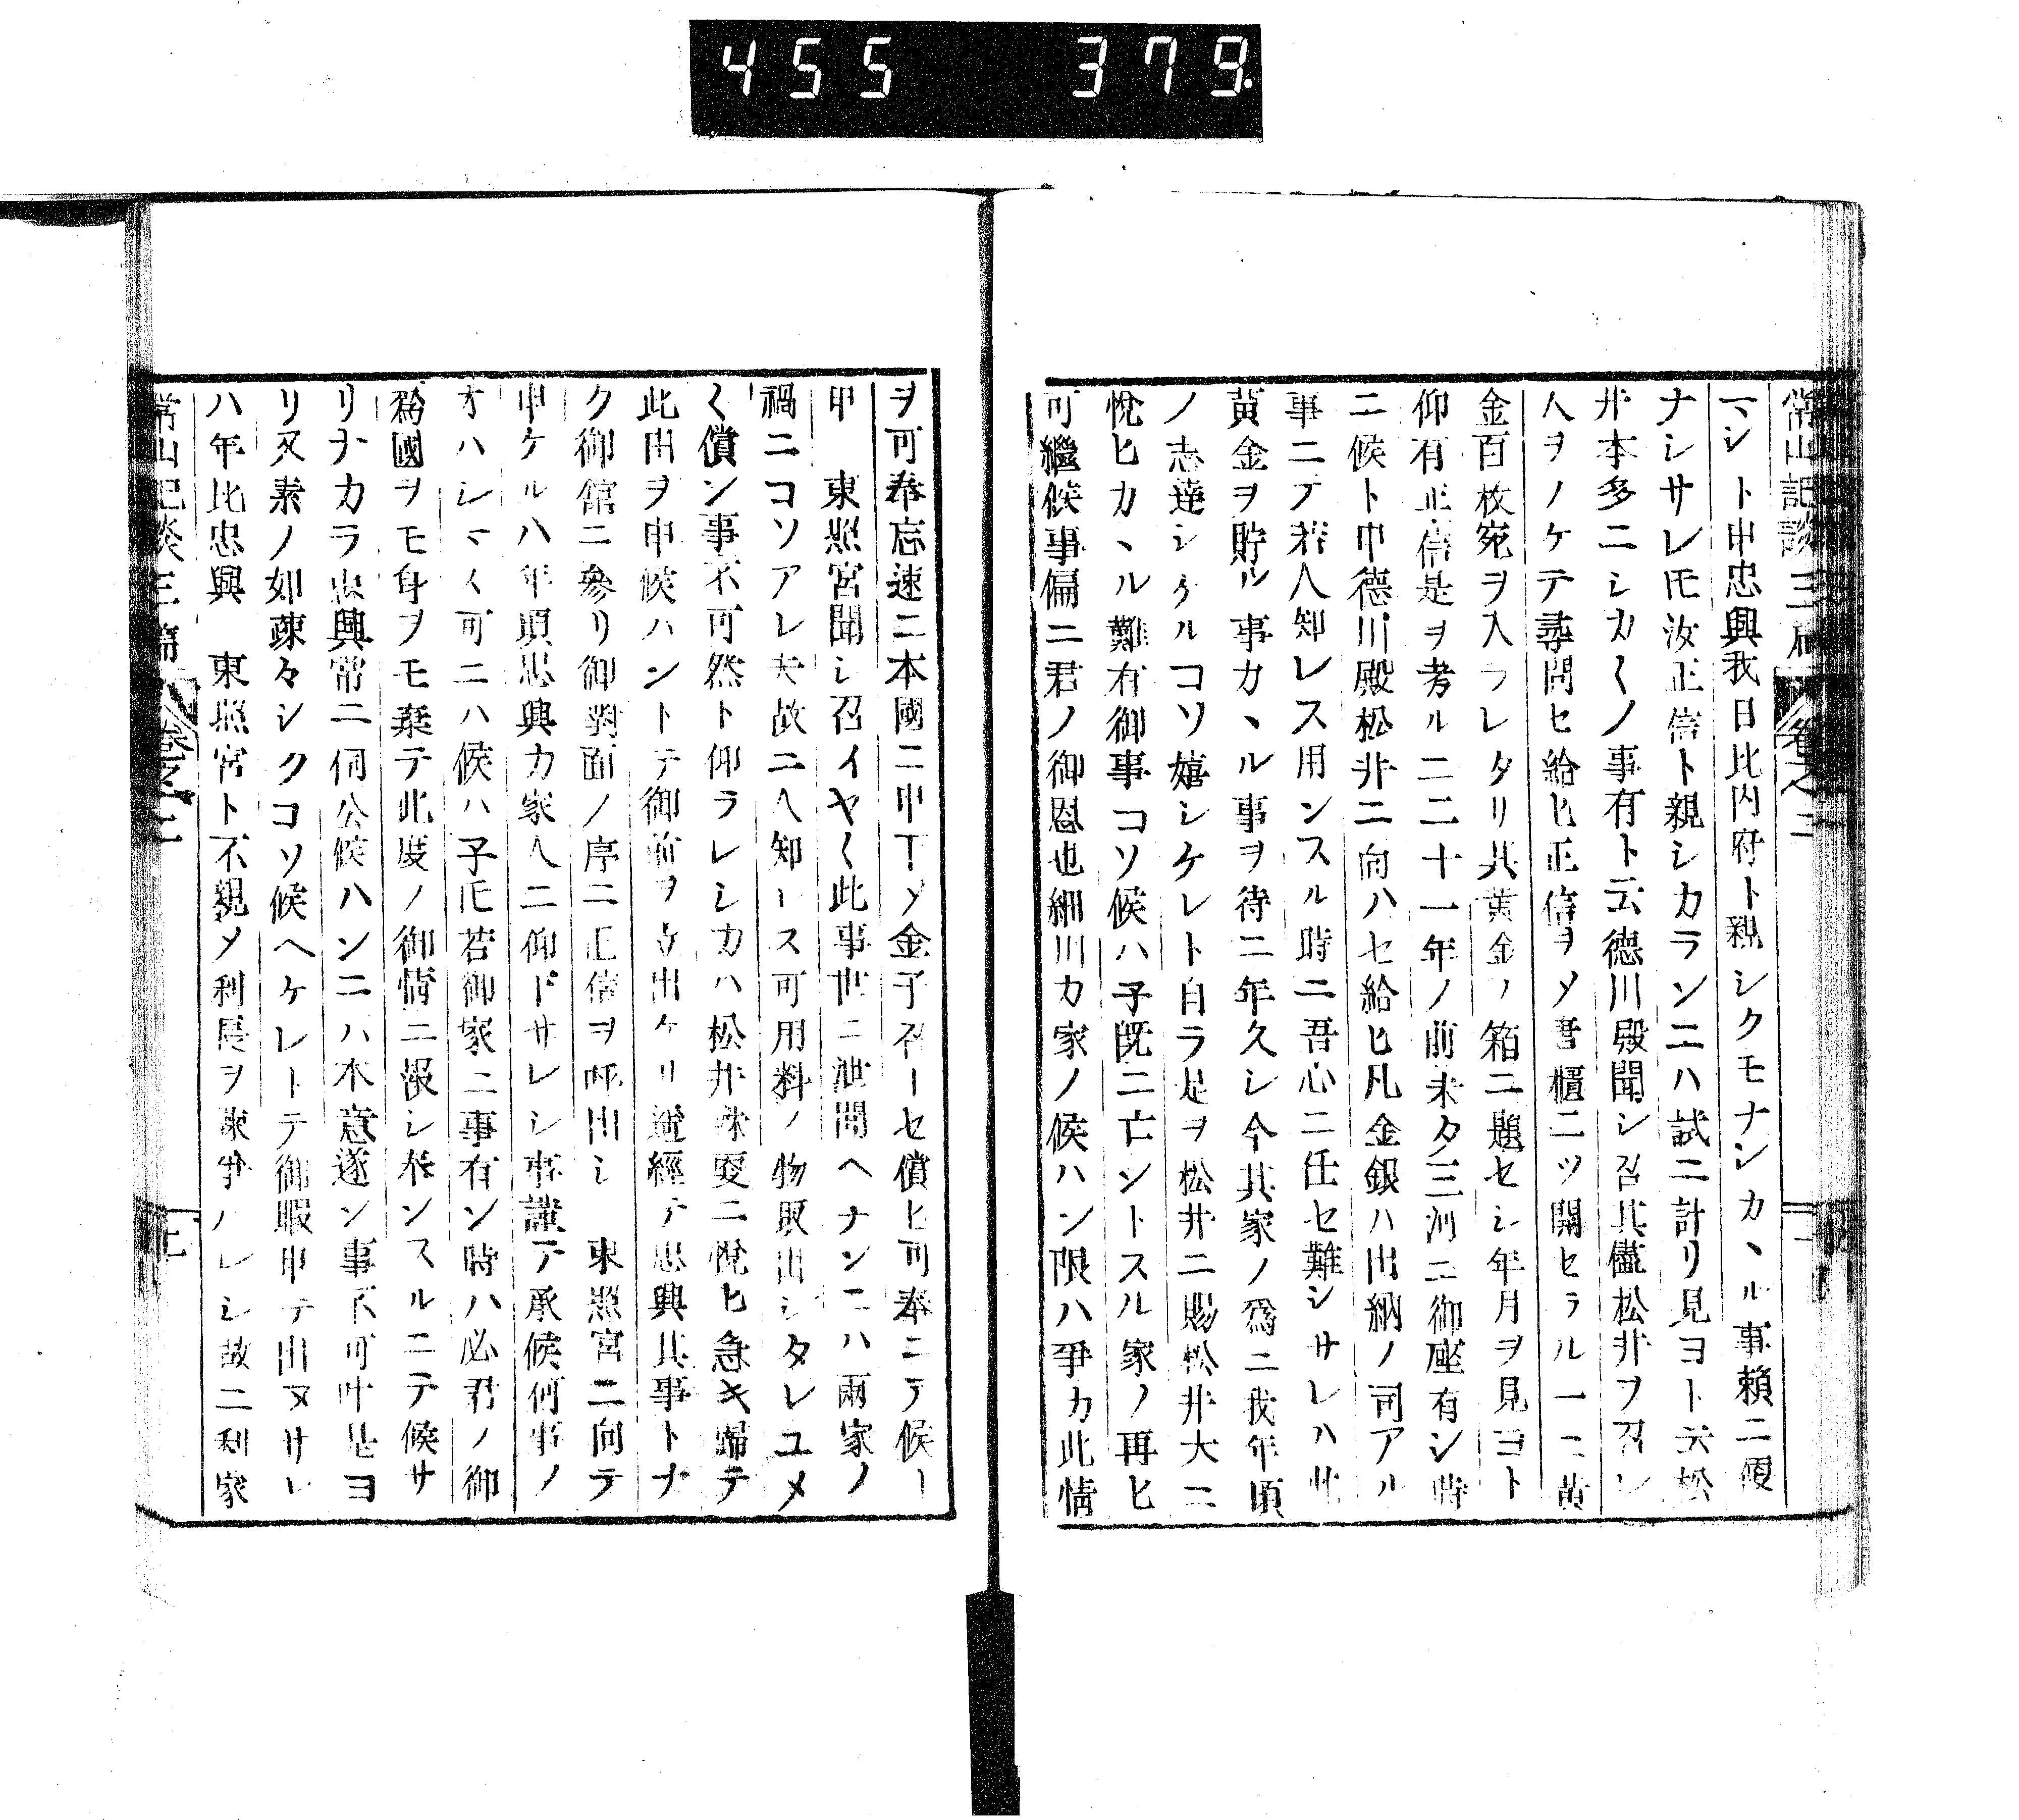 455 379
常山記談三篇 卷之二
マシト申忠興我日比内府ト親シクモナシカヽル事頼ニ便
ナシサレ𪜈汝正信ト親シカランニハ試ニ計リ見ヨト云松
井本多ニシカ〱ノ事有ト云德川殿聞シ召其儘松井ヲ召レ
人ヲノケテ尋問セ給ヒ正信ヲメ書櫃二ツ開セラル一ニ黄
金百枚宛ヲ入ラレタリ其黄金ノ箱ニ題セシ年月ヲ見ヨト
仰有正信是ヲ考ルニ二十一年ノ前未タ三河ニ御座有シ時
ニ候ト申德川殿松井ニ向ハセ給ヒ凡金銀ハ出納ノ司アル
事ニテ若人知レス用ンスル時ニ吾心ニ任セ難シサレハ
黄金ヲ貯ル事カヽル事ヲ待ニ年久シ今其家ノ爲ニ我年頃
ノ志達シケルコソ嬉シケレト自ラ是ヲ松井ニ賜松井大ニ
悅ヒカヽル難有御事コソ候ハ子既ニ亡ントスル家ノ再ヒ
可繼候事偏ニ君ノ御恩也細川カ家ノ候ハン限ハ爭カ此情
ヲ可奉忘速ニ本國ニ申下メ金子召ーセ償ヒ可奉ニテ候ー
申 東照宮聞シ召イヤ〱此事世ニ泄聞ヘナンニハ兩家ノ
禍ニコソアレ夫故ニ人知レス可用料ノ物取出シタレユメ
〱償ン事不可然ト仰ラレシカハ松井殊更ニ悅ヒ急キ歸テ
此由ヲ申候ハントテ御前ヲ立出ケリ程經テ忠興其事トナ
ク御館ニ參リ御對面ノ序ニ正信ヲ呼出シ 東照宮ニ向テ
申ケルハ年頃忠興カ家人ニ仰下サレシ事謹テ承候何事ノ
オハシマス可ニハ候ハ子𪜈若御家ニ事有ン時ハ必君ノ御
爲國ヲモ身ヲモ棄テ此度ノ御情ニ報シ奉ンスルニテ候サ
リナカラ忠興常ニ伺公候ハンニハ本意遂ン事不可叶是ヨ
リ又素ノ如疎々シクコソ候ヘケレトテ御暇申テ出ヌサレ
ハ年比忠興 東照宮ト不親メ利長ヲ諫爭ハレシ故ニ利家
常山紀談三篇 卷之二